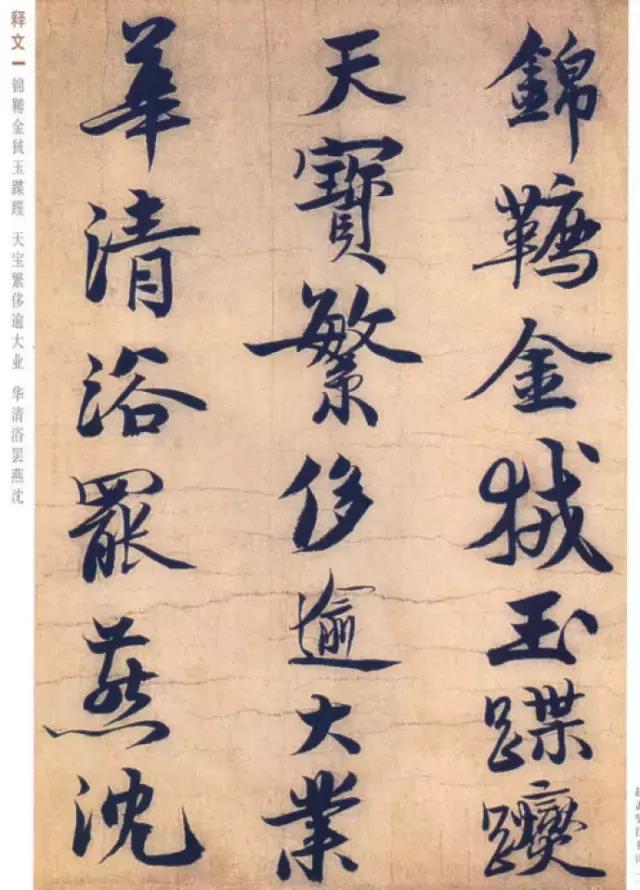 錦鞯金絨玉蹀躞
天寶繁侈逾大業
華清浴罷燕沈
释文一
锦鞯金绒玉蹀躞 天宝繁侈逾大业 华清浴罢燕沈